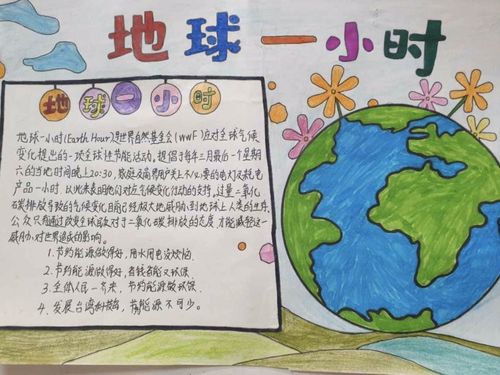 地球一小时
地球一小时
地球一小时(Earth Hour)是世界自然基金会(WWF)应对全球气候
变化提出的一项全球性节能活动,提倡于每年三月最后一个星期
六的当地时间晚上20:30,家庭及商界用户关上不必要的电灯及耗电
产品一小时,以此来表明他们对应气候变化行动的支持,过量二氧化
碳排放导致的气候变化目前已经极大地威胁到地球上人类的生存,
公众只有通过改变全球民众对于二氧化碳排放的态度,才能减轻这一
威胁对世界造成的影响。
1.节约能源做得好,用水用电没烦恼
2.节约能源做得好,省钱省能又环保
3.全体人民一齐来,节约能源做环保
4.发展 节能源不可少。